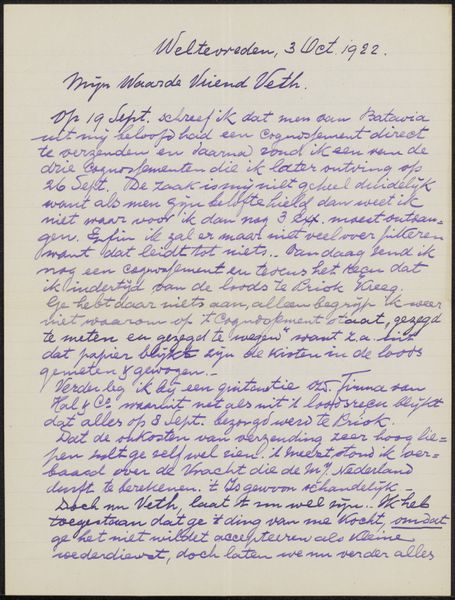 Weltevreden, 3 Oct 1922.
Mijn Waarde Vriend Veth.
Op 19 Sept. schreef ik dat men van Batavia
uit mij beloofd had een Cognossement direct
te verzenden en daarna zond ik een van de
drie Cognossementen die ik later ontving op
26 Sept. De zaak is mij niet geheel duidelijk
want als men zijn belofte hield dan weet ik
niet waar voor ik dan nog 3 Ex. moest ontvan-
gen. Enfin ik zal er maar niet veel over
want dat leidt tot niets.. Vandaag zend ik
nog een cognossement en tevens het Reçu dat
ik indertijd van de loods te Priok Kreeg.
Ge hebt daar niets aan, alleen begrijp ik weer
niet waarom op 't Cognossement staat, gezegd
te meten en gezegd te wegen" want z.a. uit
dat papier blijkt zijn de Kisten in de loods
gemeten & gewogen. -
Verder leg ik bij een quitantie v/d. Firma van
Hal & Co. waaruit net als uit 't loodsreçu blijkt
dat alles op 8 Sept. bezorgd werd te Priok.
Dat de onkosten van verzending zeer hoog lie-
pen zult ge zelf wel zien. 't meest stond ik ver-
baasd over de Vracht die de Mij Nederland
durft te berekenen. 't Is gewoon schandelijk -
Doch nu Veth, laat 't nu wel zijn.. Ik heb
toegestaan dat ge 't ding van me Kocht, omdat
ge het niet wildet accepteeren als Kleine
wederdienst, doch laten we nu verder alles